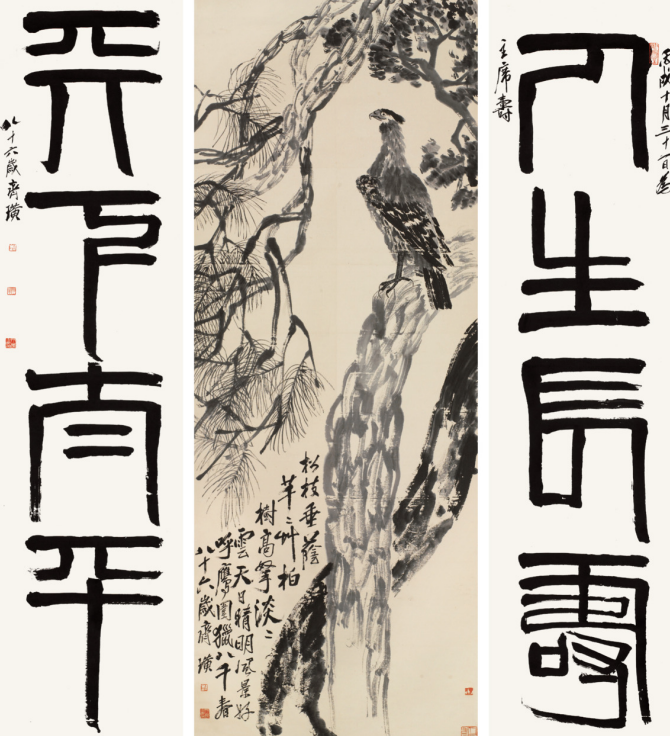 丙戌十月三十一日
人生長壽
主席壽
松枝垂蔭
芊〻艸柏
樹高擎淡〻
雲天日晴明風景好
呼鷹圍獵八千春
八十六歲齊璜
天下太平
八十六歲齊璜